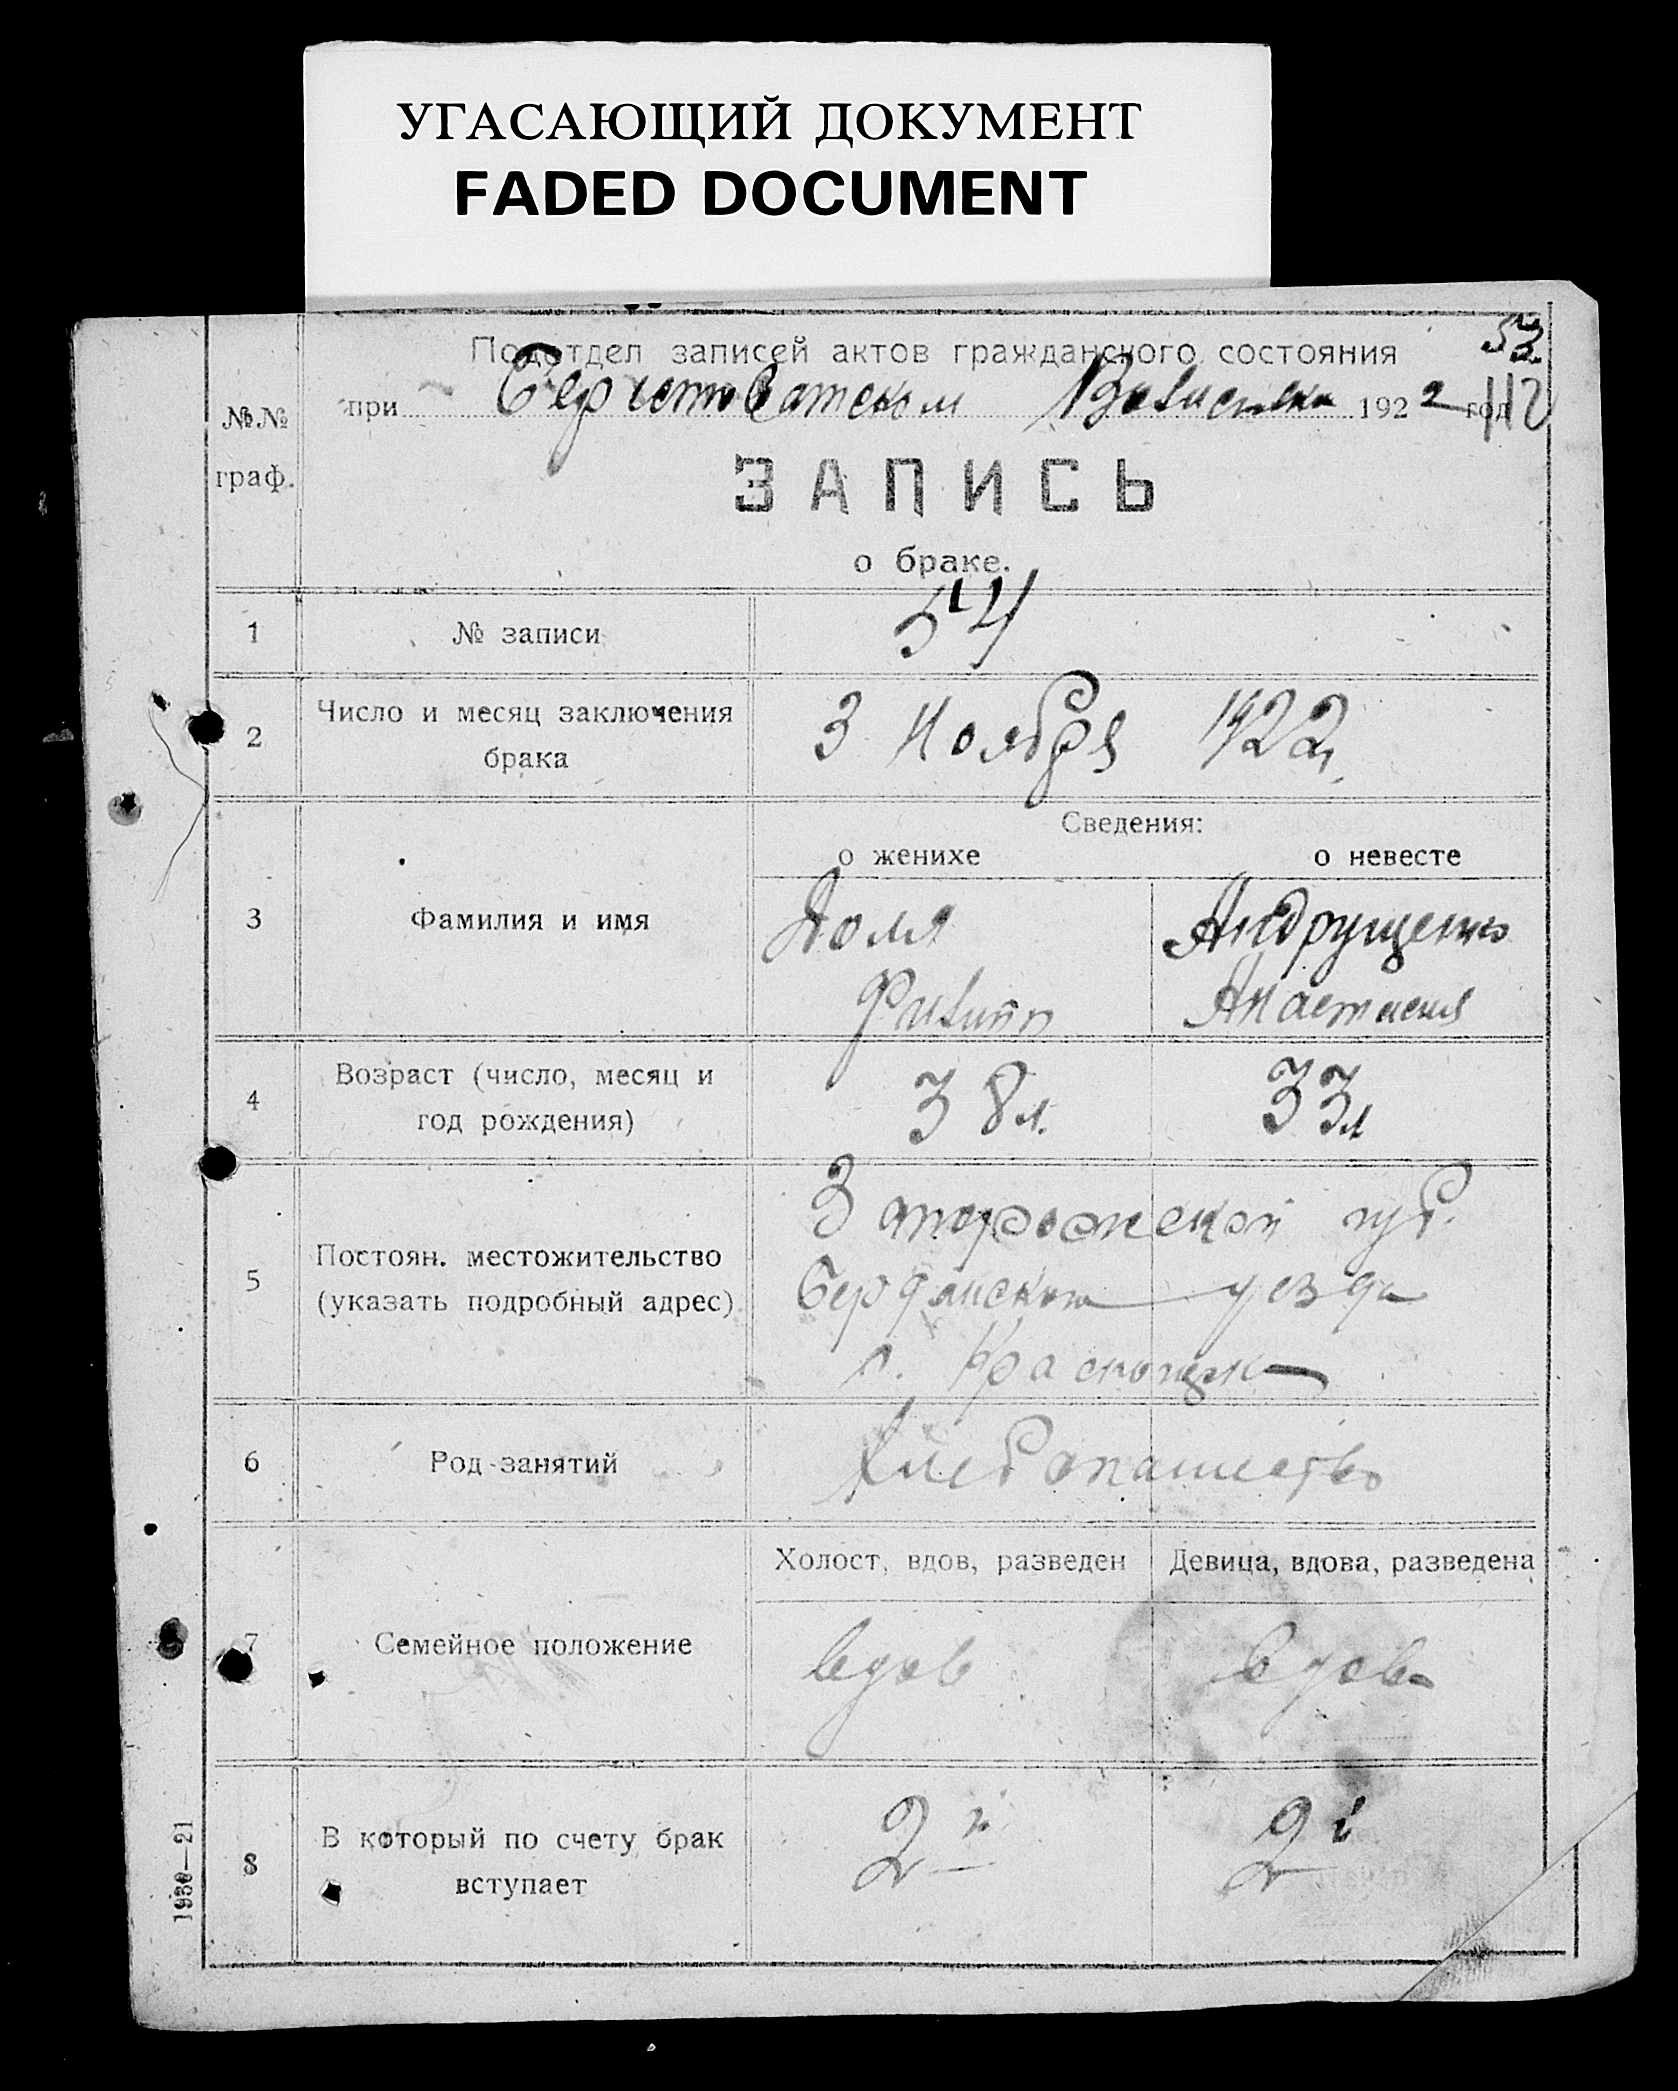 УГАСАЮЩИЙ ДОКУМЕНТ
FADED DOCUMENT
53
Подотдел записей актов гражданского состояния
при Берестоватском 1922 год
112
№№ граф.
ЗАПИСЬ
о браке.
1 № записи 54
2 Число и месяц заключения брака 3 Ноября 1922
Сведения:
о женихе о невесте
3 Фамилия и имя Доля Андрущенко
Филипп Анастасия
4 Возраст (число, месяц и год рождения) 38 л. 33 л
5 Постоян. местожительство (указать подробный адрес) Запорожской губ.
Бердянского уезда
с.
6 Род занятий Хлебопашество
Холост, вдов, разведен Девица, вдова, разведена
7 Семейное положение вдов вдова
8 В который по счету брак вступает 2й 2й
1930—21